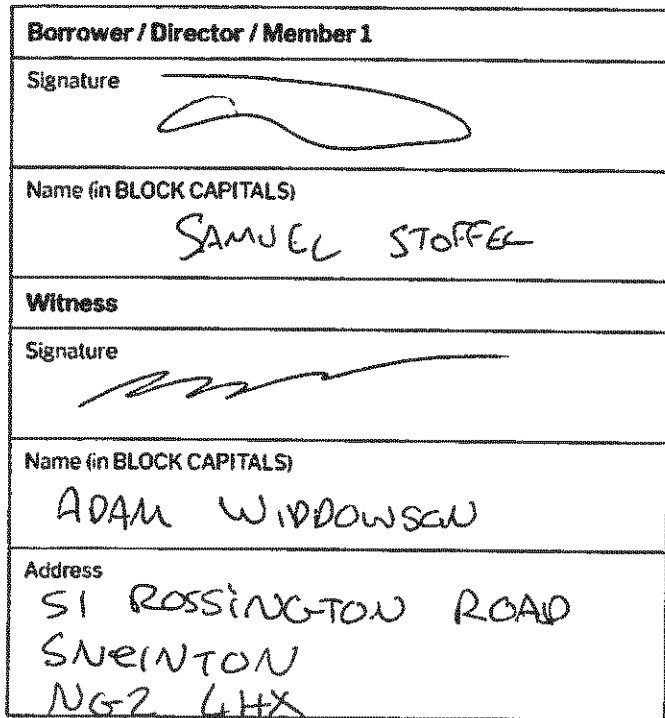 Borrower / Director / Member 1
Signature
Name (in BLOCK CAPITALS)
SAMUEL STOFFEL
Witness
Signature
Name (in BLOCK CAPITALS)
ADAM WIDDOWSON
Address
51 ROSSiNGTON ROAD
SNeINTON
NG2 4HX